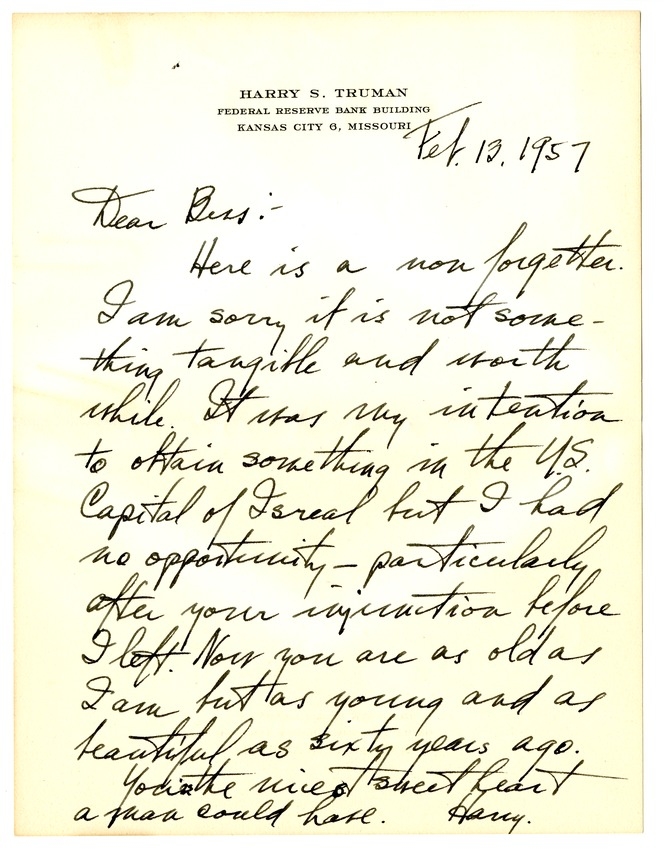 HARRY S. TRUMAN
FEDERAL RESERVE BANK BUILDING
KANSAS CITY 6, MISSOURI
Feb. 13, 1957
Dear Bess:-
Here is a non forgetter.
I am sorry it is not some-
thing tangible and worth
while. It was my intention
to obtain something in the U.S.
Capital of Isreal but I had
no opportunity — particularly
after your injunction before
I left. Now you are as old as
I am but as young and as
beautiful as sixty years ago.
You're the nicest sweetheart
a man could have. Harry.